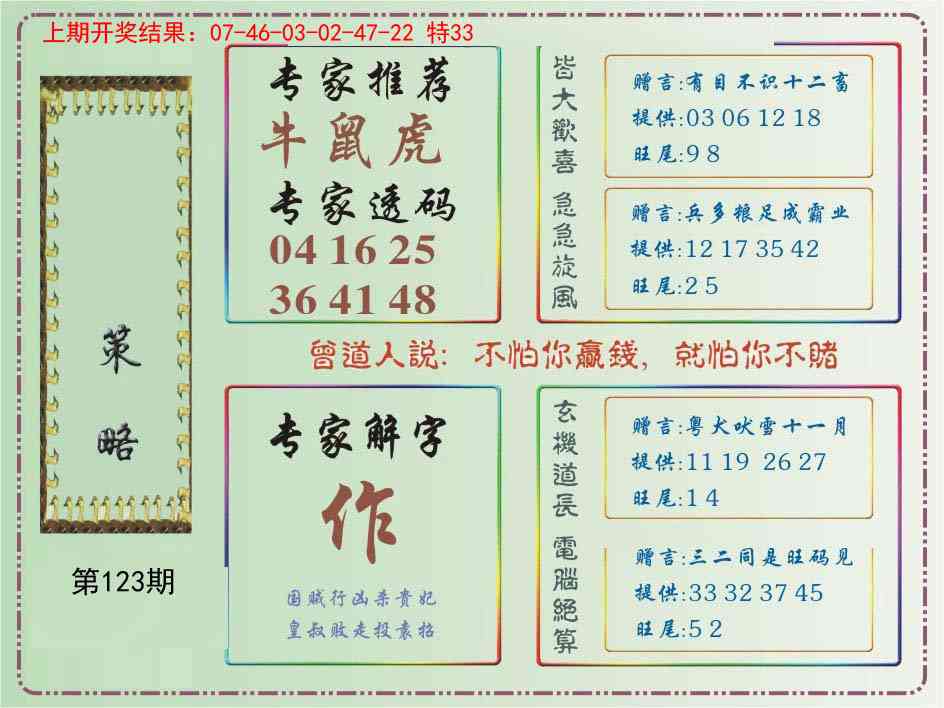 上期开奖结果：07-46-03-02-47-22 特33
策略
第123期
专家推荐
牛鼠虎
专家透码
04 16 25
36 41 48
皆大歡喜
赠言:有目不识十二畜
提供:03 06 12 18
旺尾:9 8
急急旋風
赠言:兵多粮足成霸业
提供:12 17 35 42
旺尾:2 5
曾道人説：不怕你贏錢，就怕你不賭
专家解字
作
国贼行凶杀贵妃
皇叔败走投袁招
玄機道長
赠言:粤犬吠雪十一月
提供:11 19 26 27
旺尾:1 4
電腦絕算
赠言:三二同是旺码见
提供:33 32 37 45
旺尾:5 2